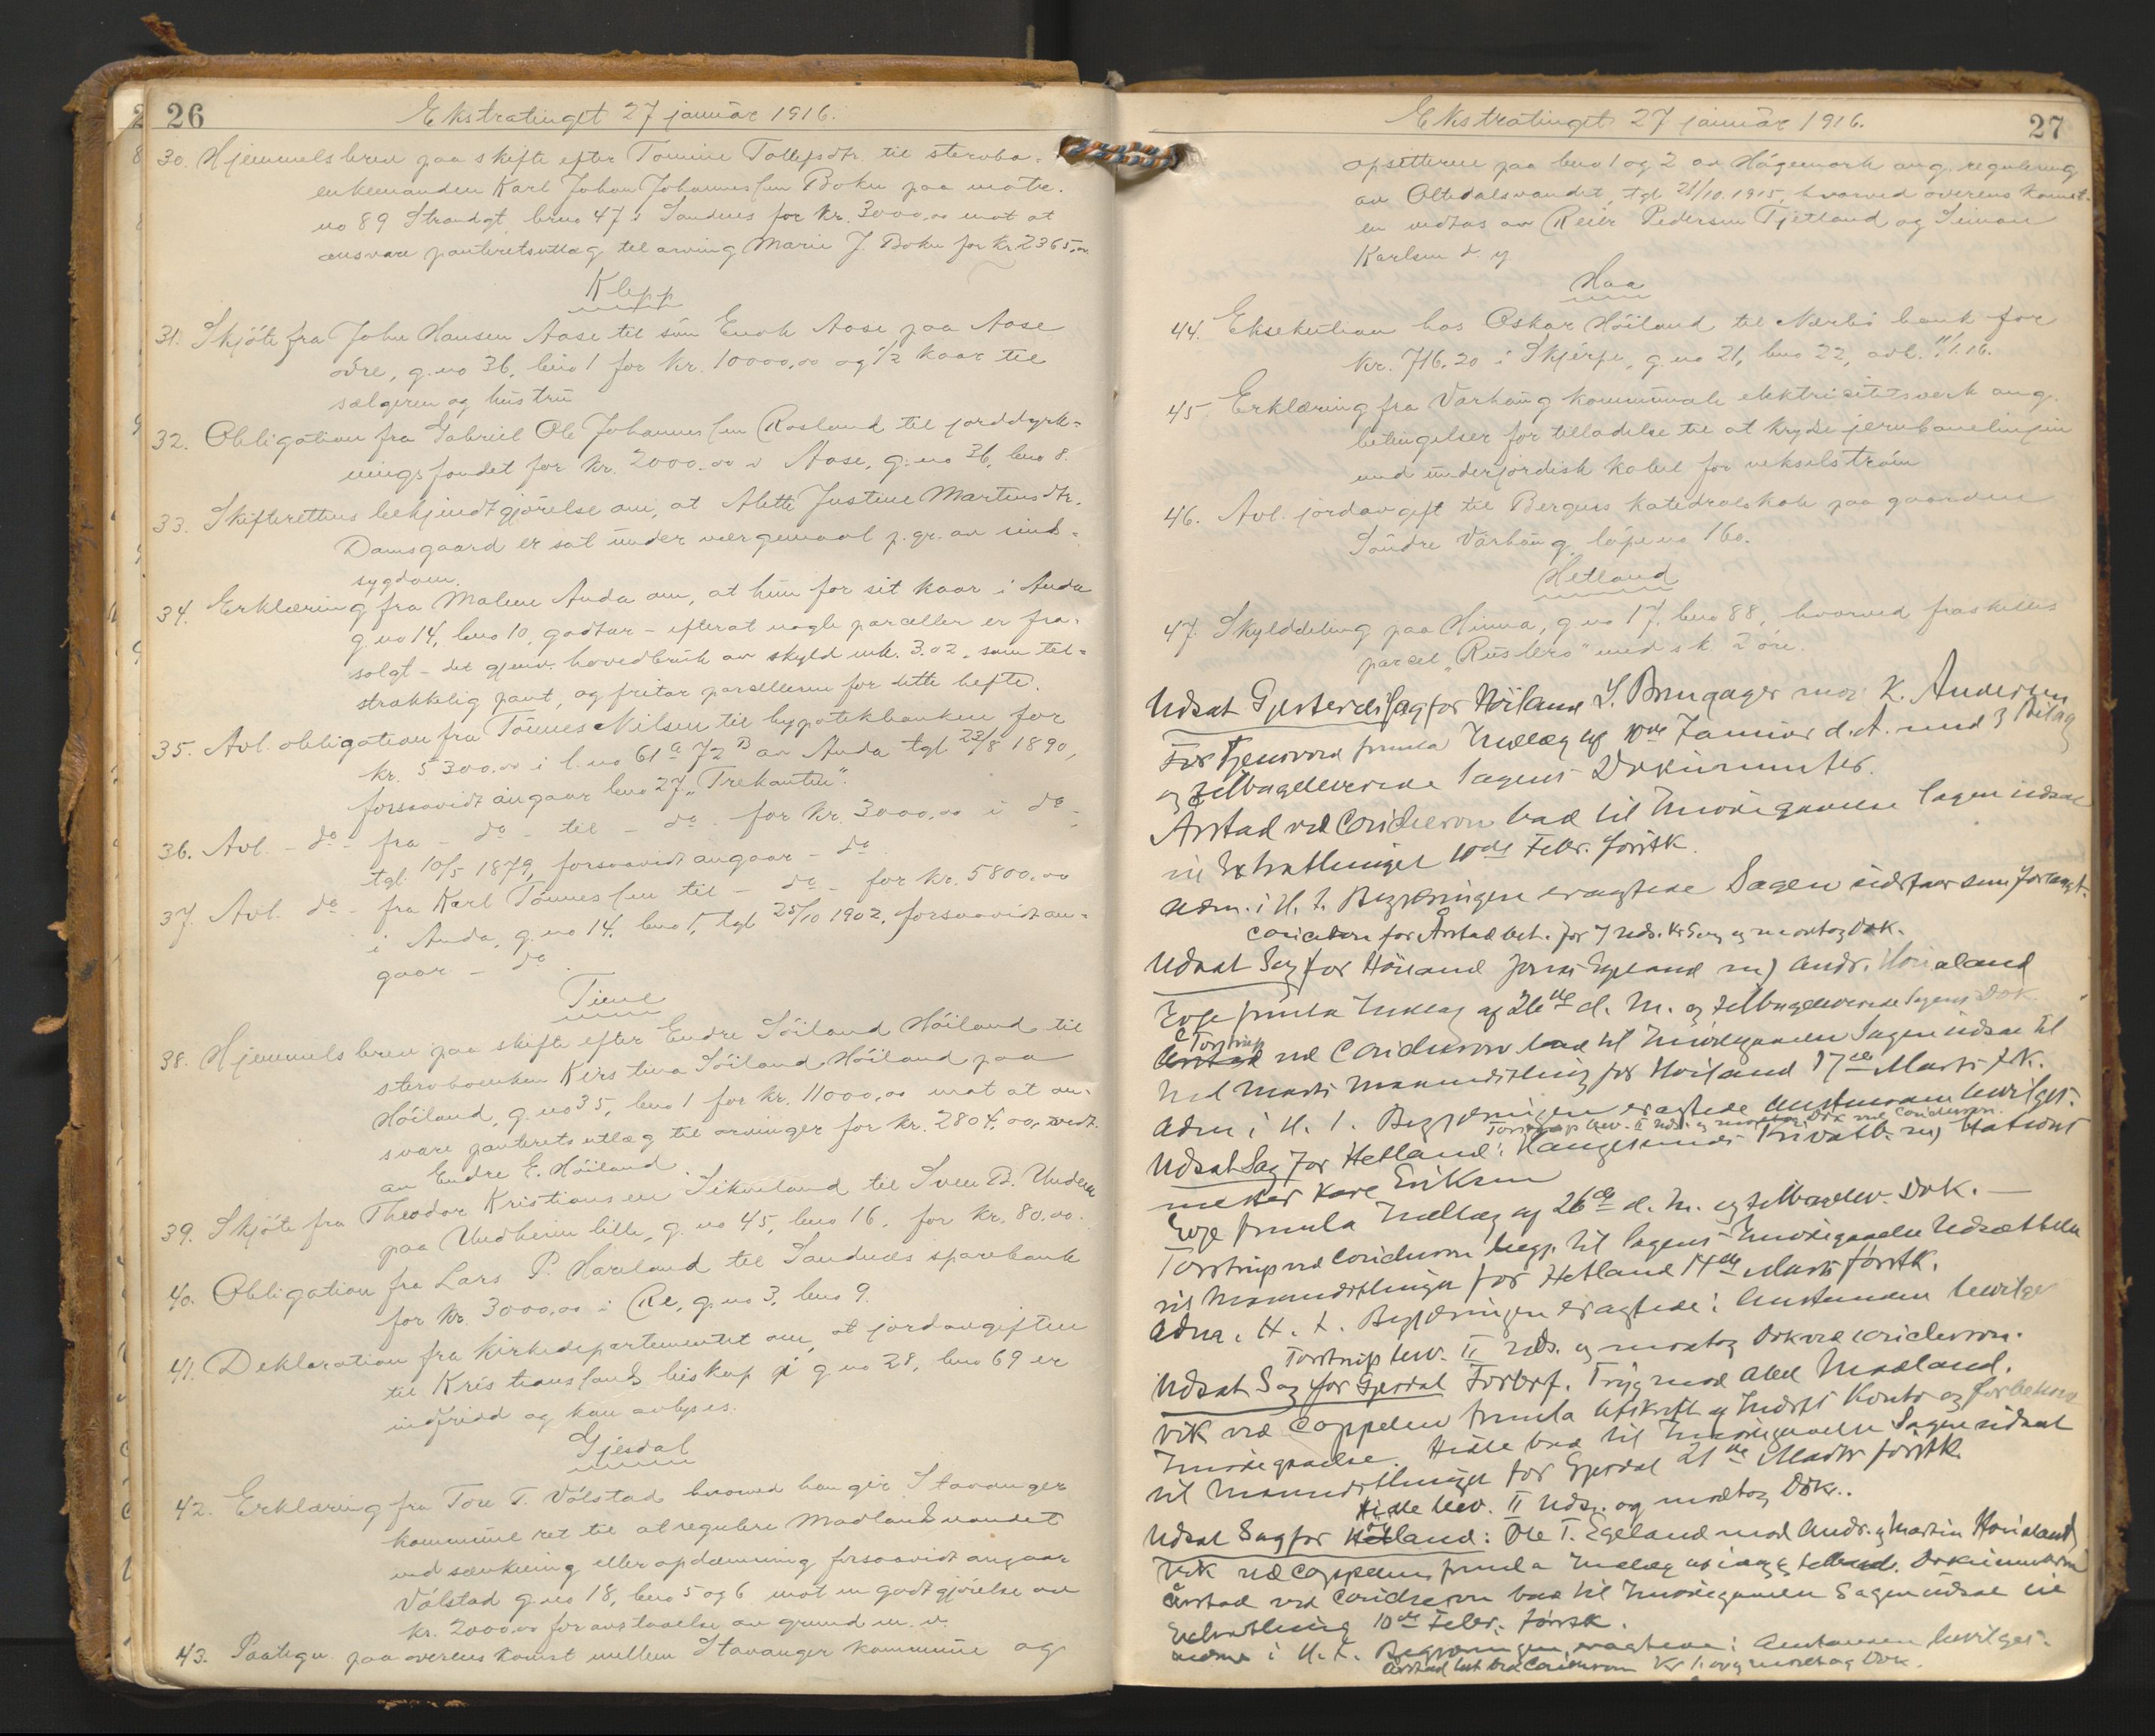 26
Ekstratinget 27 januar 1916.
30. Hjemmelsbrev paa skifte efter Tomine Tollefsdtr. til stervbo-
enkemanden Karl Johan Johannessen Boku paa matr.
no 89 Strandgt, brno 47 i Sandnes for kr. 3000,00 mot at
ansvare panteretsutlæg til arving Marie J. Boku for kr. 2365,00
Klepp
31. Skjöte fra John Hansen Aase til sön Enok Aase paa Aase
övre, g.no 36, bno 1 for kr. 10000,00 og 1/2 kaar til
sælgeren og hustru
32. Obligation fra Gabriel Ole Johannessen Rosland til jorddyrk-
ningsfondet for kr. 2000,00 i Aase, g.no 36, bno 8.
33. Skifterettens bekjendtgjörelse om, at Alette Justine Martinsdtr.
Damsgaard er sat under værgemaal p. gr. av sind-
sygdom.
34. Erklæring fra Malene Anda om, at hun for sit kaar i Anda
g.no 14, bno 10, godtar - efterat nogle parceller er fra-
solgt - det gjenv. hovedbruk av skyld mk. 3.02, som til-
strækkelig pant, og fritar parcellerne for dette hefte.
35. Avl. obligation fra Tönnes Nilsen til hypotekbanken for
kr. 5300,00 i l.no 61a 72b av Anda tgl. 23/8 1890,
forsaavidt angaar bno 27 „Trekanten".
36. Avl. - do - fra - do - til - do - for kr. 3000,00 i do -
tgl. 10/5 1879, forsaavidt angaar - do
37. Avl. do - fra Karl Tönnessen til - do - for kr. 5800,00
i Anda, g.no 14, bno 1, tgl 25/10 1902, forsaavidt an-
gaar - do.
Time
38. Hjemmelsbrev paa skifte efter Endre Söiland Höiland til
stervboenken Kirstina Söiland Höiland paa
Höiland, g.no 35, bno 1 for kr. 11000,00 mot at an-
svare panteretsutlæg til arvinger for kr. 2804,00, vedt.
av Endre E. Höiland.
39. Skjöte fra Theodor Kristiansen Sikveland til Sven B. Undem
paa Undheim lille, g.no 45, bno 16, for kr. 80,00.
40. Obligation fra Lars P. Haaland til Sandnes sparebank
for kr. 3000,00 i Re, g.no 3, bno 9.
41. Deklaration fra kirkedepartementet om, at jordavgiften
til Kristianssands biskop i g.no 28, bno 69 er
indfridd og kan avlyses.
Gjesdal
42. Erklæring fra Tore T. Völstad hvorved han gir Stavanger
kommune ret til at regulere Madlandsvandet
ved sænkning eller opdæmning forsaavidt angaar
Völstad g.no 18, bno 5 og 6 mot en godtgjörelse av
kr. 2000,00 for avstaaelse av grund m. v.
43. Paategn. paa overenskomst mellem Stavanger kommune og
27
Ekstratinget 27 januar 1916.
opsitterne paa bno 1 og 2 av Hagemark ang. regulering
av Oltedalsvandet, tgl. 21/10. 1915, hvorved overenskomst-
en vedtas av Reier Pedersen Tjetland og Simon
Karlsen d. y
Haa
44. Eksekution hos Oskar Höiland til Nærbö bank for
kr. 716.20 i Skjerpe, g.no 21, bno 22, avh. 11/1.16.
45. Erklæring fra Varhaug kommunale elektricitetsverk ang.
betingelser for tilladelse til at krydse jernbanelinjen
med underjordisk kabel for vekselström
46. Avl. jordavgift til Bergens katedralskole paa gaarden
Söndre Varhaug, löpe no 160.
Hetland
47. Skylddeling paa Hinna, g.no 17, bno 88, hvorved fraskilles
parcel „Rusbro" med sk. 2 öre.
Udsat Gjesterets Sag for Höiland mod K. Andersen
Indlæg af 10de Januar d. A. med 3 Bilag
og tilbageleverede Sagens Dokumenter.
Årstad ved Coridiersen bad til Imödegaaelse Sagen udsat
til Extrathinget 10de Febr. förstk.
Adm. i H. t. Begjæringen eragtede Sagen udstaar som forlangt.
for Årstad
Udsat Sag for Höiland Egeland m) Andr. Höialand
Indlæg af 26de d. M. og tilbageleverede Sagens Dok
Torstrup
bad til Imödegaaelse Sagen udsat til
Marts Maanedsthing for Höiland 17de Marts f.K.
Adm i H. t. Begjæringen eragtede Anstanden bevilges.
Udsat Sag for Hetland: Haugesunds Privatb. m) Stations
mester Kare Eriksen
Indlæg af 26de d. M. og tilbagelev. Dok. —
Torstrup ved begj. til Sagens Imödegaaelse Udsættelse
til Maanedsthinget for Hetland 14de Marts förstk.
Adm. i H. t. Begjæringen eragtede: Anstanden bevilges
Torstrup bev. II Uds. og modtog Dok
Udsat Sag for Gjesdal Tryg mod Abel Madland.
Vik ved Cappelen Afskrift af Konto og forbeholdt
Imödegaaelse. Hille bad til Imödegaaelse Sagen udsat
til Maanedsthinget for Gjesdal 21de Marts förstk.
Hille bev. II Uds. og modtog Dok.
Udsat Sag for Höiland: Ole T. Egeland mod Andr. og Martin Höialand
Vik ved Cappelen Indlæg af idag Dokumenterne
Årstad ved bad til Imödegaaelse Sagen udsat til
Extrathing 10de Febr. förstk.
i H. t. Begjæringen eragtede: Anstanden bevilges.
og modtog Dok.